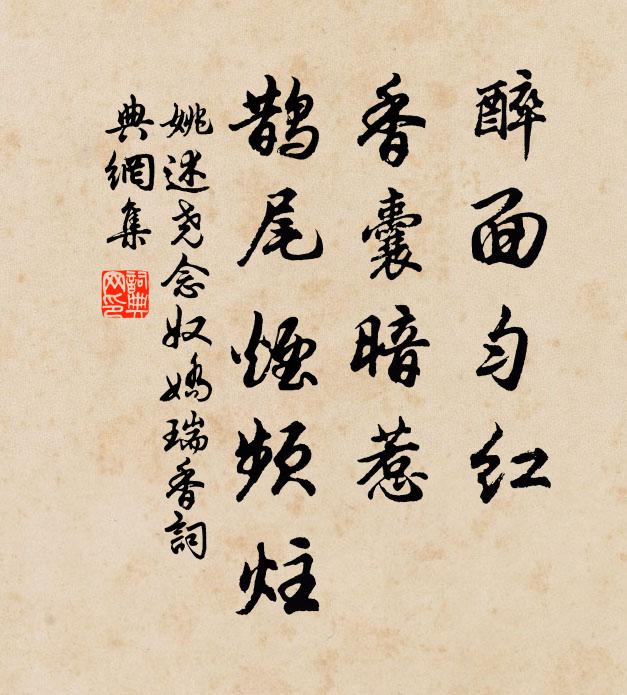 醉面匀红
香囊暗惹
鹊尾煙频炷
姚述尧念奴娇瑞香詞
典網集
詞典网印